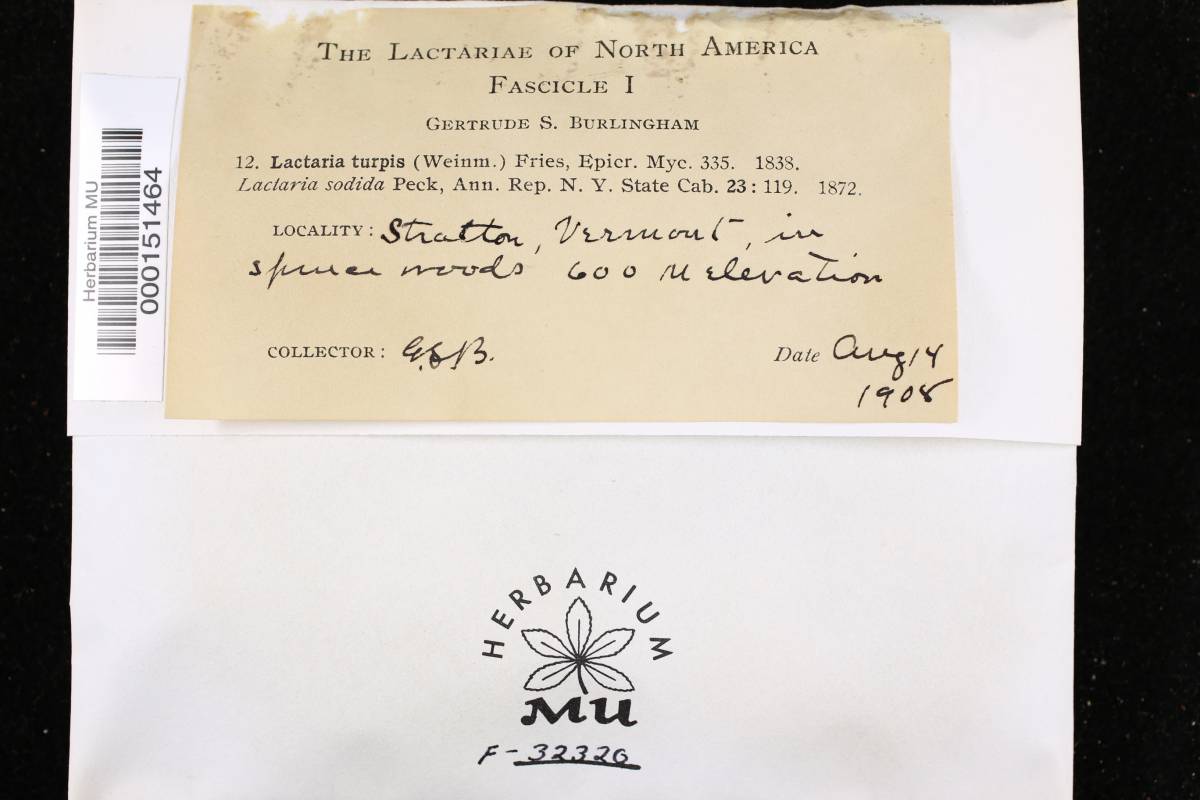 THE LACTARIAE OF NORTH AMERICA
FASCICLE I
GERTRUDE S. BURLINGHAM
12. Lactaria turpis (Weinm.) Fries, Epicr. Myc. 335. 1838.
Lactaria sodida Peck, Ann. Rep. N. Y. State Cab. 23: 119. 1872.
LOCALITY: Stratton, Vermont, in
spruce woods 600 M elevation
COLLECTOR: G.S.B.
Date Aug 14
1908
Herbarium MU
000151464
HERBARIUM
MU
F-32326